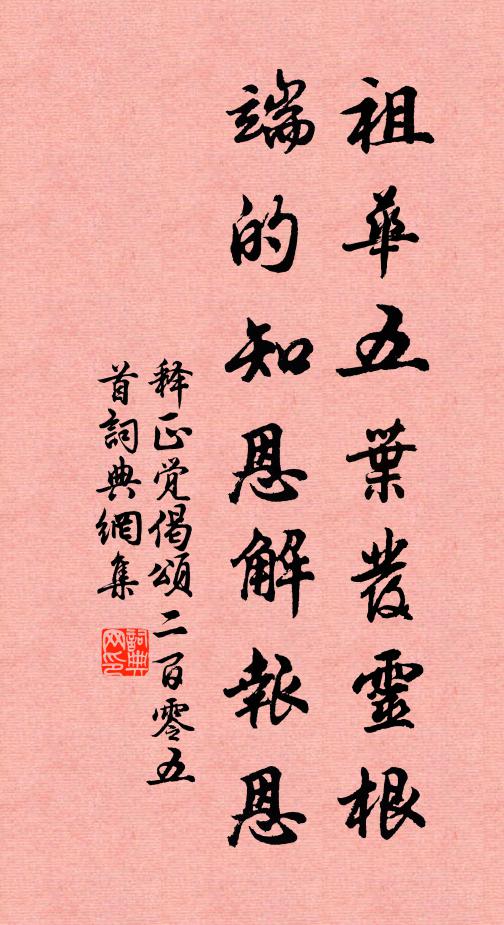 祖華五葉發靈根
端的知恩解報恩
释正觉偈頌二百零五
首詞典網集
詞典
网印